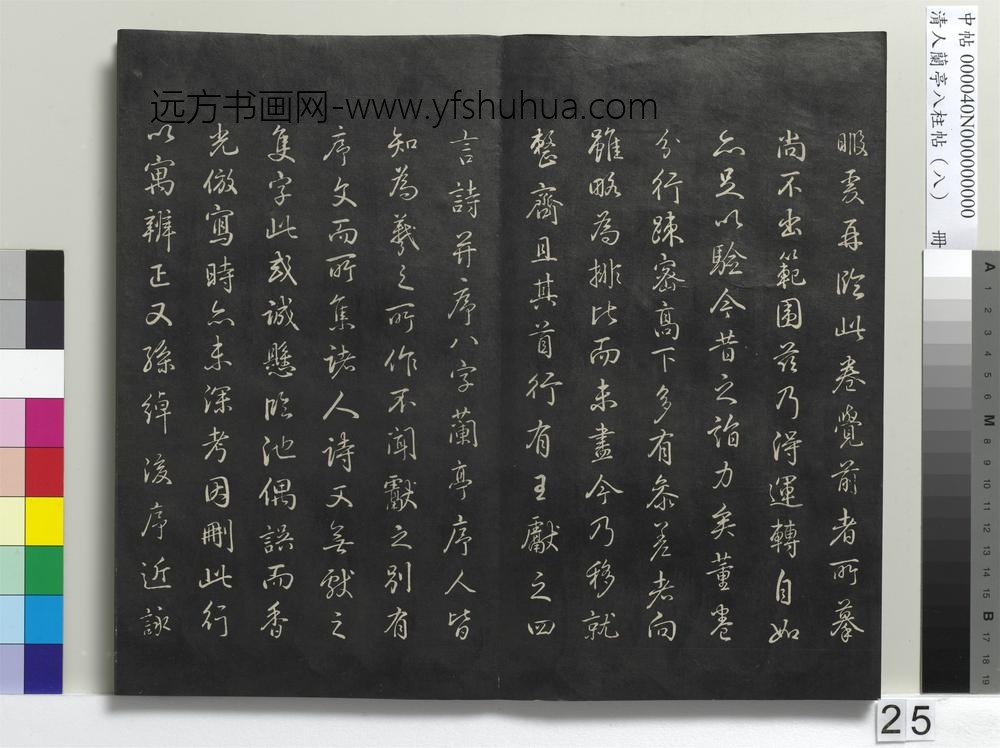 中帖 000040N000000000
清人蘭亭八柱帖（八） 冊
远方书画网-www.yfshuhua.com
暇爰再臨此卷覺前者所摹
尚不出範圍茲乃得運轉自如
亦足以驗今昔之詣力矣董卷
分行踈密高下多有參差者向
雖略為排比而未盡今乃移就
整齊且其首行有王獻之四
言詩并序八字蘭亭序人皆
知為羲之所作不聞獻之別有
序文而所集諸人詩又無獻之
隻字此或誠懸臨池偶誤而香
光倣寫時亦未深考因刪此行
以寓辨正又孫綽後序近詠
A 1 2 3 4 5 6 M 8 9 10 11 12 13 14 15 B 17 18 19
25